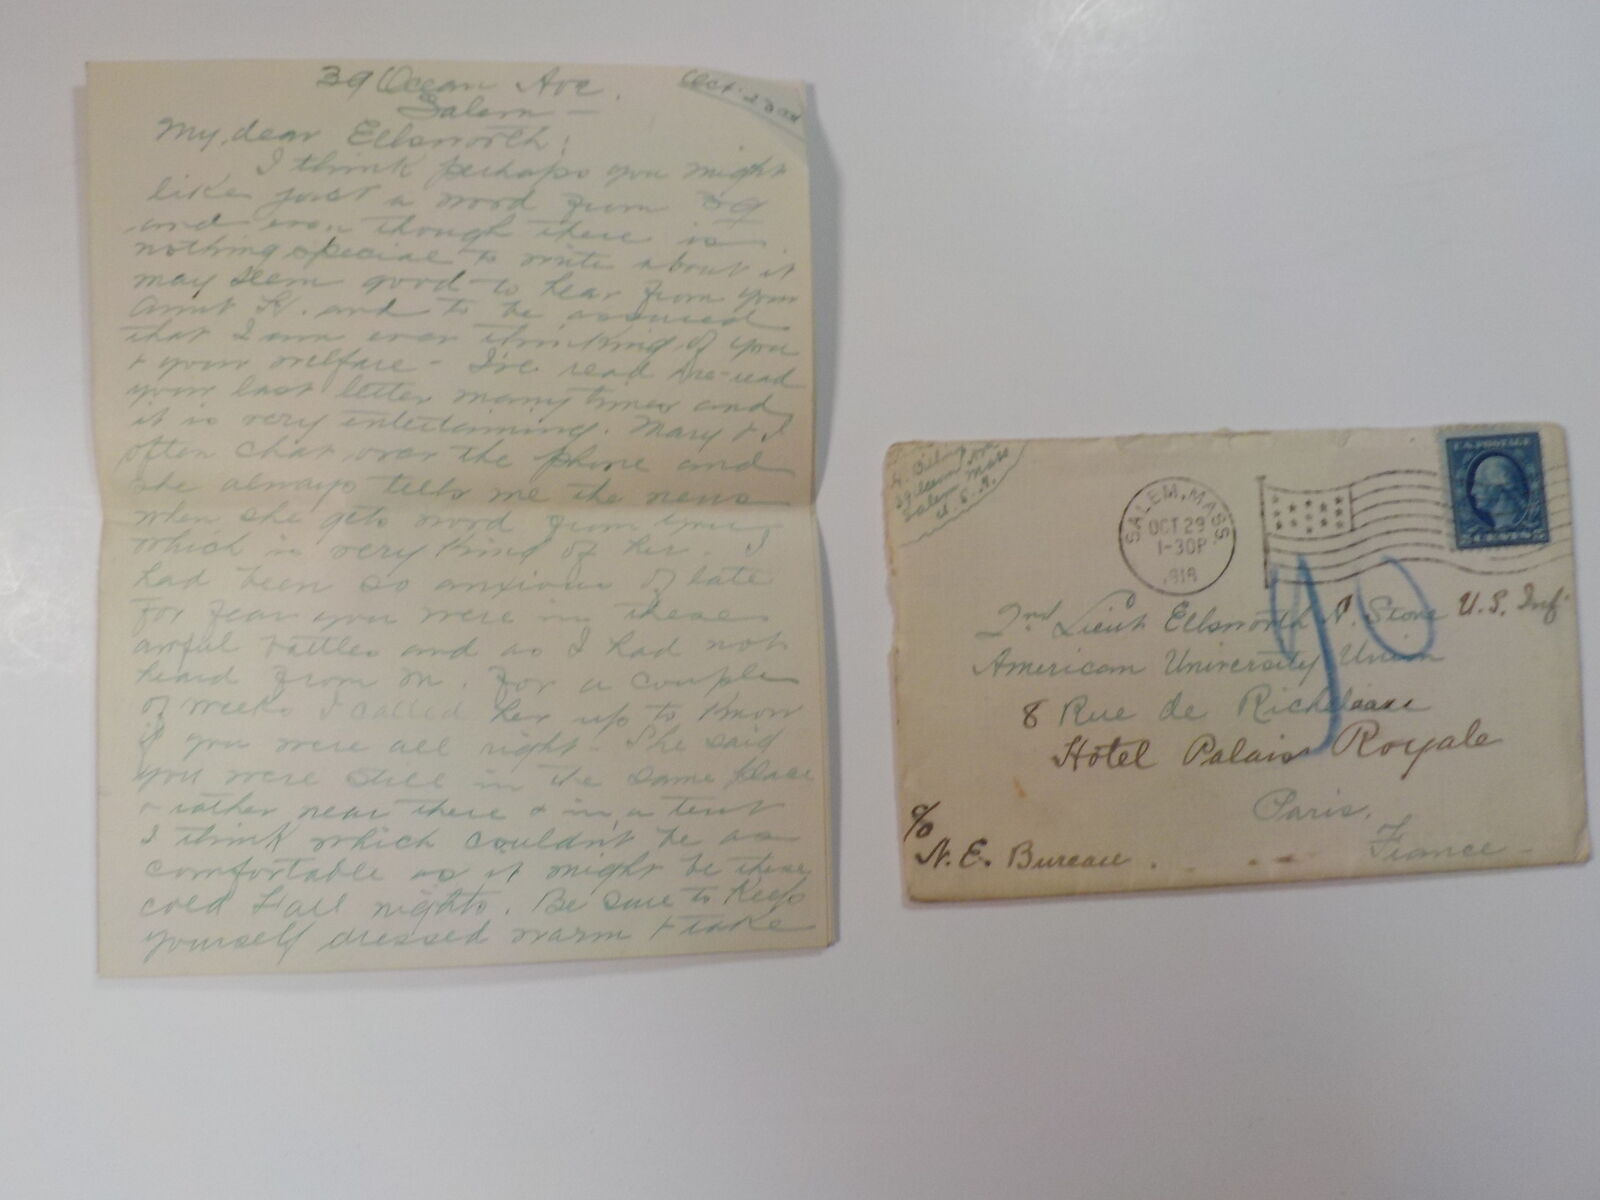 39 Ocean Ave.
Salem —
Oct. 
My dear Ellsworth:
I think perhaps you might
like just a word from 39
and even though there is
nothing special to write about it
may seem good to hear from your
Aunt H. and to be assured
that I am ever thinking of you
+ your welfare - I've read + re-read
your last letter many times and
it is very entertaining. Mary + I
often chat over the phone and
she always tells me the news
when she gets word from you
which is very kind of her. I
had been so anxious of late
for fear you were in these
awful battles and as I had not
heard from M. for a couple
of weeks I called her up to know
if you were all right - She said
you were still in the same place
or rather near there + in a tent
I think which couldn't be as
comfortable as it might be these
cold Fall nights. Be sure to keep
yourself dressed warm + take
H. Billings
39 Ocean Ave
Salem Mass
U.S.A.
SALEM, MASS.
OCT 29
1-30P
1918
U.S. POSTAGE
CENTS
2nd Lieut Ellsworth A. Stone U.S. Inf.
American University Union
8 Rue de Richelieau
Hotel Palais Royale
Paris.
France —
c/o
N.E. Bureau.